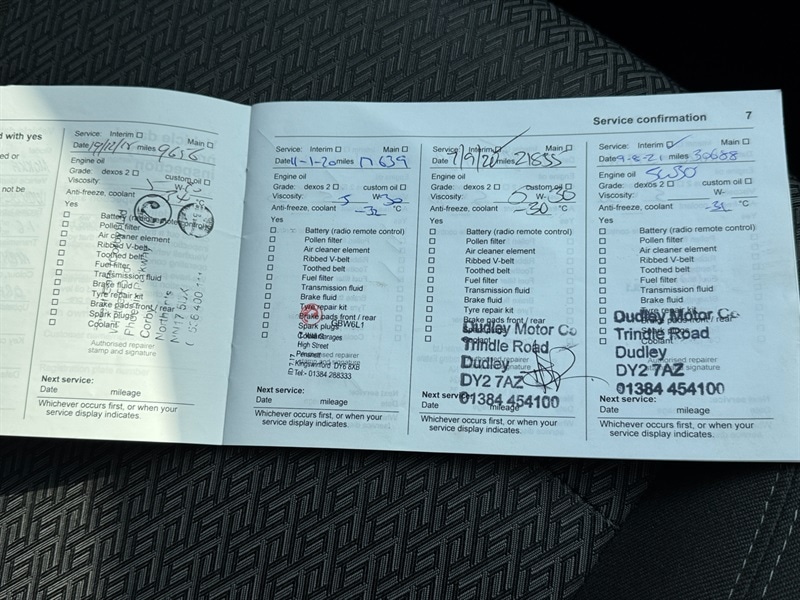 Service confirmation 7
d with yes
ed or
not be
Service: Interim ☐ Main ☐
Date 19/12/18 miles 9656
Engine oil
Grade: dexos 2 ☐ custom oil ☐
Viscosity: W-
Anti-freeze, coolant
Yes
☐ Battery (radio remote control)
☐ Pollen filter
☐ Air cleaner element
☐ Ribbed V-belt
☐ Toothed belt
☐ Fuel filter
☐ Transmission fluid
☐ Brake fluid
☐ Tyre repair kit
☐ Brake pads front / rear
☐ Spark plugs
☐ Coolant
Authorised repairer
stamp and signature
Next service:
Date mileage
Whichever occurs first, or when your
service display indicates.
Service: Interim ☐ Main ☐
Date 11-1-20 miles 17639
Engine oil
Grade: dexos 2 ☐ custom oil ☐
Viscosity: 5 W- 30
Anti-freeze, coolant -32 °C
Yes
☐ Battery (radio remote control)
☐ Pollen filter
☐ Air cleaner element
☐ Ribbed V-belt
☐ Toothed belt
☐ Fuel filter
☐ Transmission fluid
☐ Brake fluid
☐ Tyre repair kit
☐ Brake pads front / rear
☐ Spark plugs
☐
High Street
Pensnett
Kingswinford DY6 8XB
Tel:- 01384 288333
Next service:
Date mileage
Whichever occurs first, or when your
service display indicates.
Service: Interim ☐ Main ☐
Date 7/9/20 miles 21855
Engine oil
Grade: dexos 2 ☐ custom oil ☐
Viscosity: 0 W- 30
Anti-freeze, coolant -30 °C
Yes
☐ Battery (radio remote control)
☐ Pollen filter
☐ Air cleaner element
☐ Ribbed V-belt
☐ Toothed belt
☐ Fuel filter
☐ Transmission fluid
☐ Brake fluid
☐ Tyre repair kit
Dudley Motor Co
Trindle Road
Dudley
DY2 7AZ
01384 454100
Next service:
Date mileage
Whichever occurs first, or when your
service display indicates.
Service: Interim ☐ Main ☐
Date 9-8-21 miles 30688
Engine oil 5W30
Grade: dexos 2 ☐ custom oil ☐
Viscosity: W-
Anti-freeze, coolant °C
Yes
☐ Battery (radio remote control)
☐ Pollen filter
☐ Air cleaner element
☐ Ribbed V-belt
☐ Toothed belt
☐ Fuel filter
☐ Transmission fluid
☐ Brake fluid
Dudley Motor Co
Trindle Road
Dudley
DY2 7AZ
01384 454100
Next service:
Date mileage
Whichever occurs first, or when your
service display indicates.